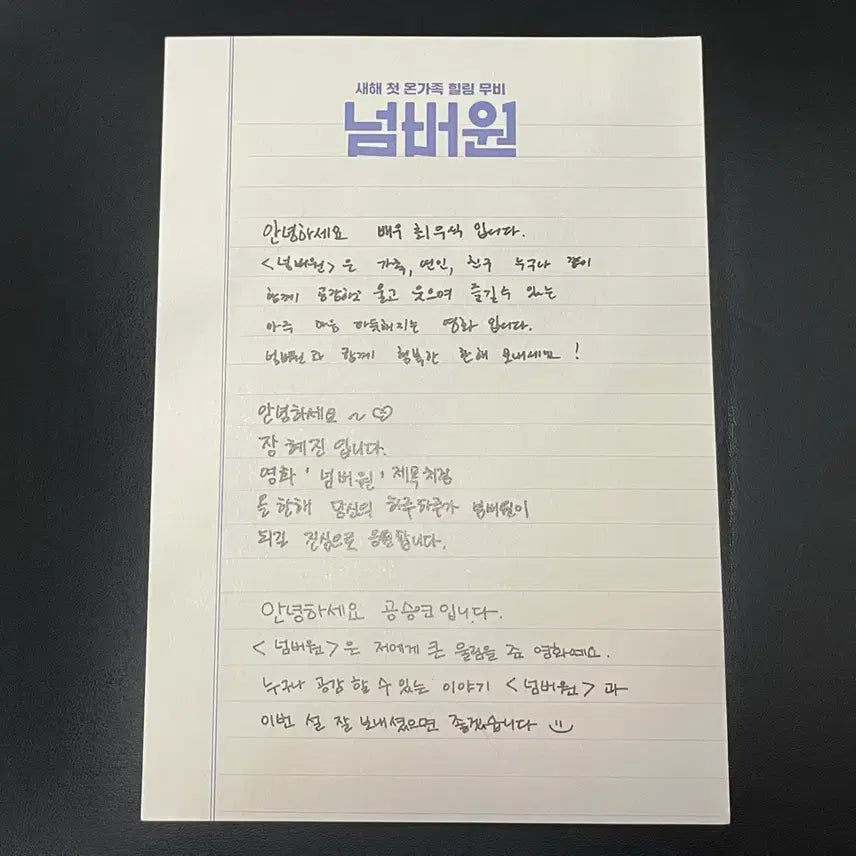 새해 첫 온가족 힐링 무비
넘버원
안녕하세요 배우 최우식 입니다.
<넘버원>은 가족, 연인, 친구 누구나 같이
함께 공감하고 울고 웃으며 즐길수 있는
아주 마음 따뜻해지는 영화 입니다.
넘버원과 함께 행복한 한해 보내세요!
안녕하세요~♡
장혜진 입니다.
영화 '넘버원' 제목처럼
올 한해 당신의 하루하루가 넘버원이
되길 진심으로 응원합니다.
안녕하세요 공승연입니다.
<넘버원>은 저에게 큰 울림을 준 영화예요.
누구나 공감 할 수 있는 이야기 <넘버원>과
이번 설 잘 보내셨으면 좋겠습니다